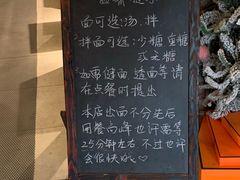 面可选:汤、拌
拌面可选:少糖 重糖
或无糖
如需硬面 透面等请
在点餐时提出
本店出面不分先后
用餐高峰也许需等
25分钟左右 不过也许
会很快的哦♡